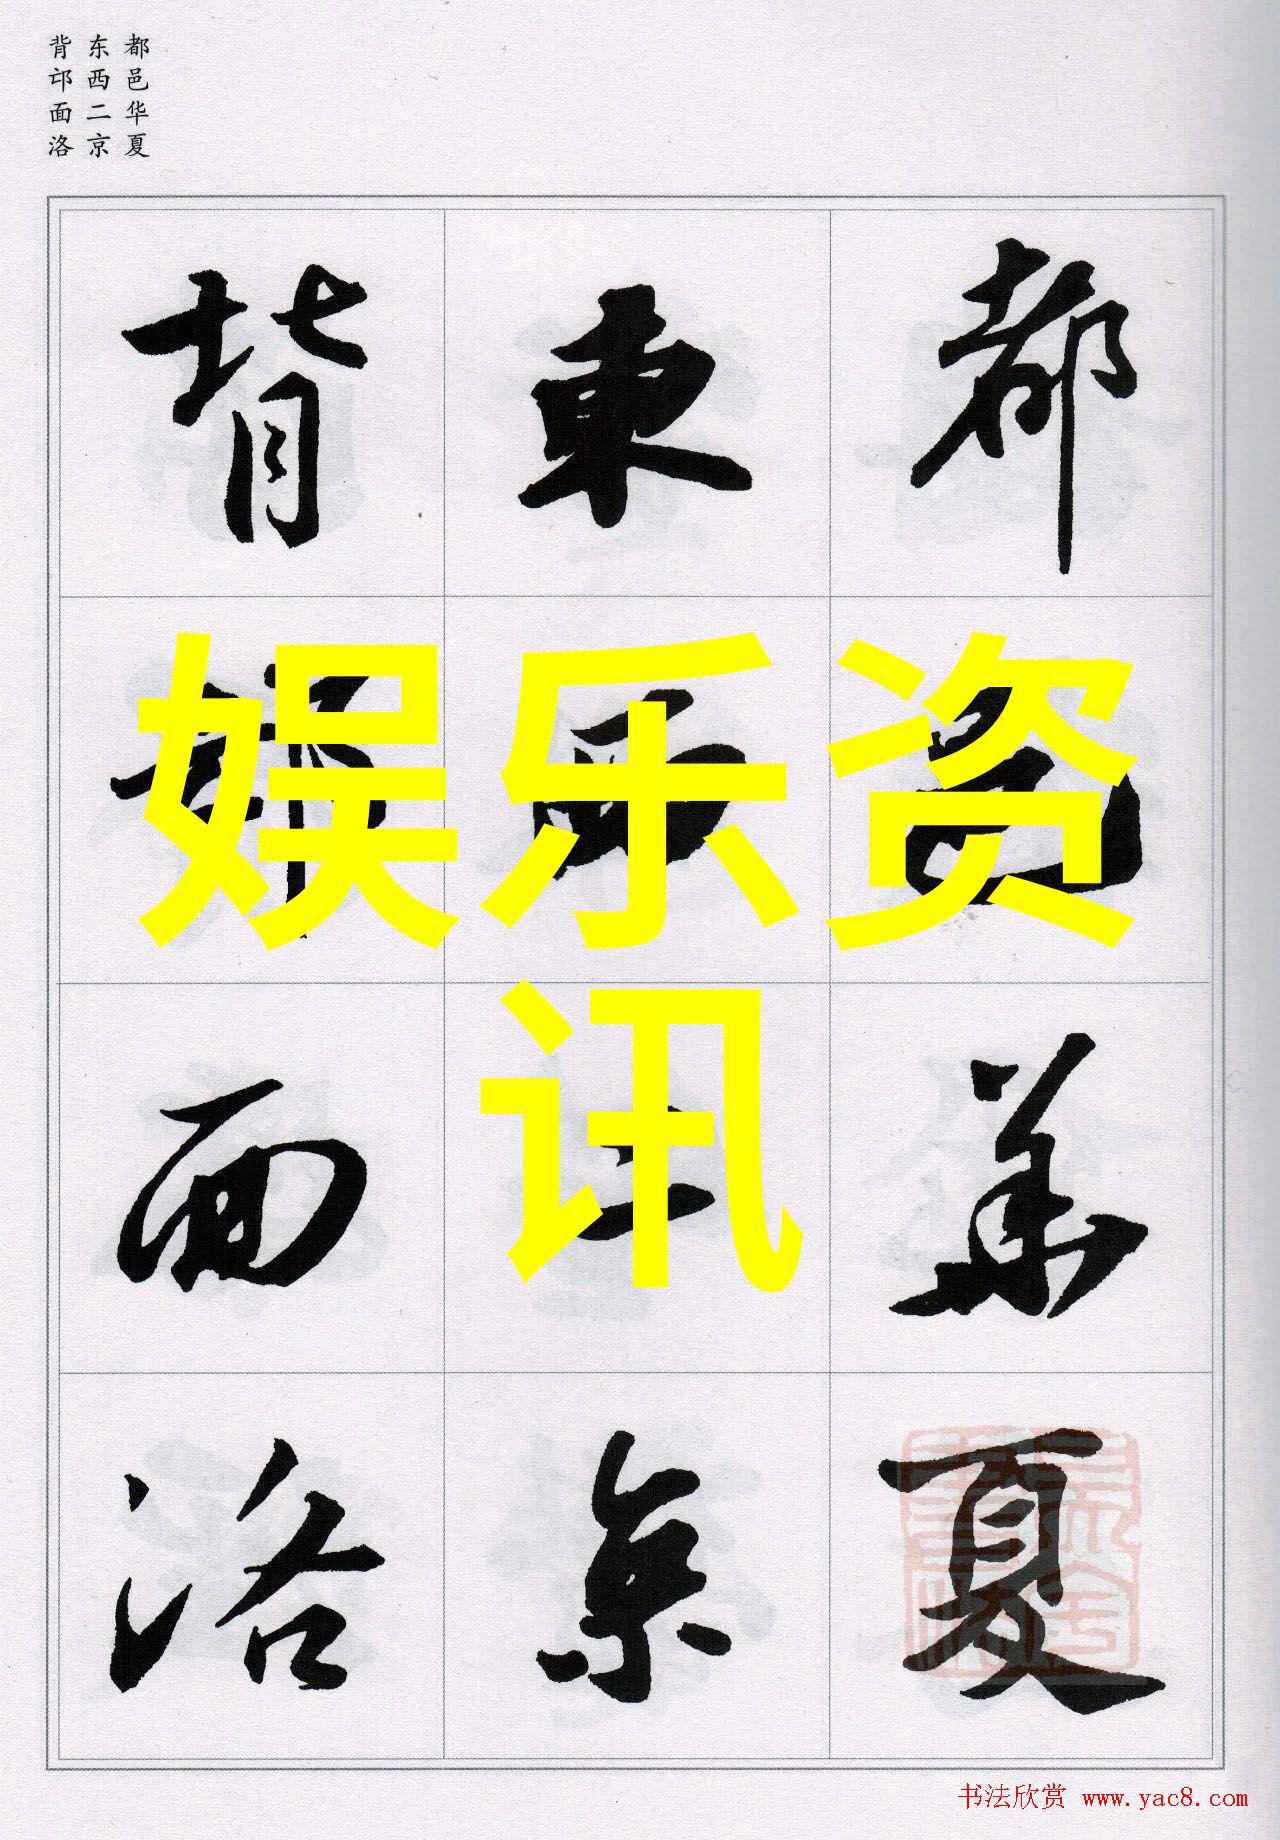 都邑华夏
东西二京
背邙面洛
都邑華夏
東西二京
背邙面洛
娱乐资
讯
书法欣赏 www.yac8.com